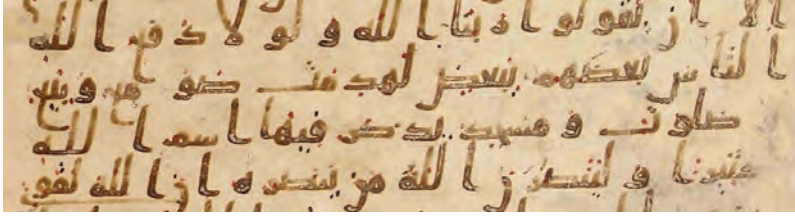 الا ان يقولوا ربنا الله ولولا دفع الله
الناس بعضهم ببعض لهدمت صومع وبيع
صلوت ومسجد يذكر فيها اسم الله
كثيرا ولينصرن الله من ينصره ان الله لقوى